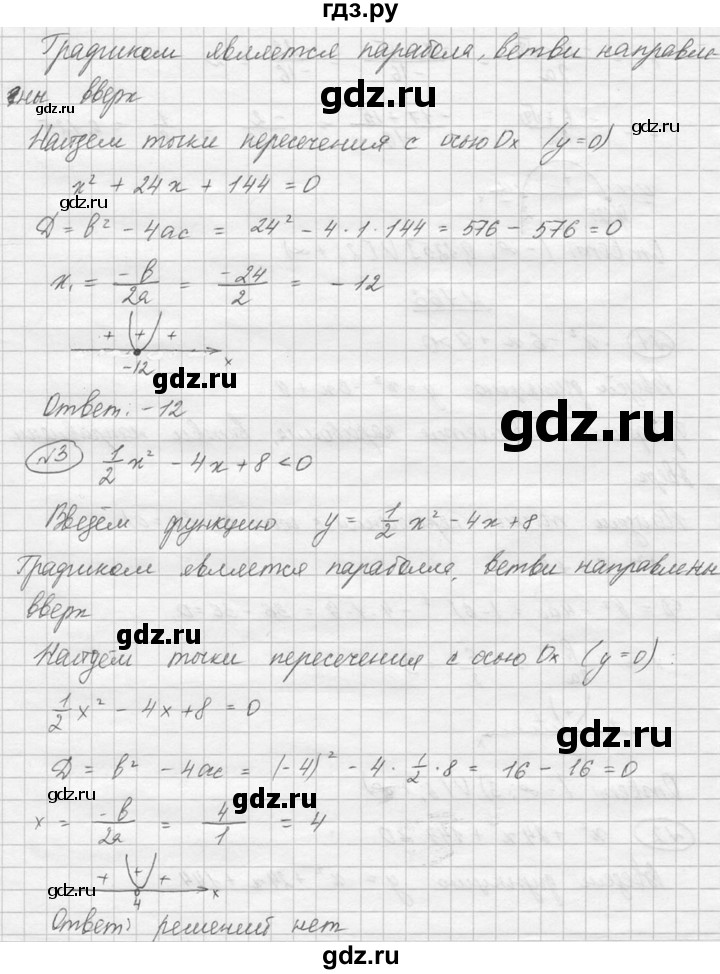 гдз.ру
Графиком является парабола, ветви направле-
ны вверх
gdz.ru
gdz.ru
Найдем точки пересечения с осью Ox (y=0)
gdz.ru
gdz.ru
x² + 24x + 144 = 0
gdz.ru
D = b² - 4ac = 24² - 4·1·144 = 576 - 576 = 0
gdz.ru
x₁ = -b/2a = -24/2 = -12
gdz.ru
+ + + x
-12
gdz.ru
gdz.ru
Ответ: -12
gdz.ru
№3 1/2 x² - 4x + 8 < 0
gdz.ru
Введём функцию y = 1/2 x² - 4x + 8
gdz.ru
Графиком является параболла, ветви направленны
вверх
gdz.ru
gdz.ru
Найдём точки пересечения с осью Ox (y=0):
gdz.ru
1/2 x² - 4x + 8 = 0
gdz.ru
D = b² - 4ac = (-4)² - 4 · 1/2 · 8 = 16 - 16 = 0
gdz.ru
gdz.ru
x = -b/2a = 4/1 = 4
gdz.ru
+ + + x
4
gdz.ru
Ответ: решений нет
gdz.ru
gdz.ru